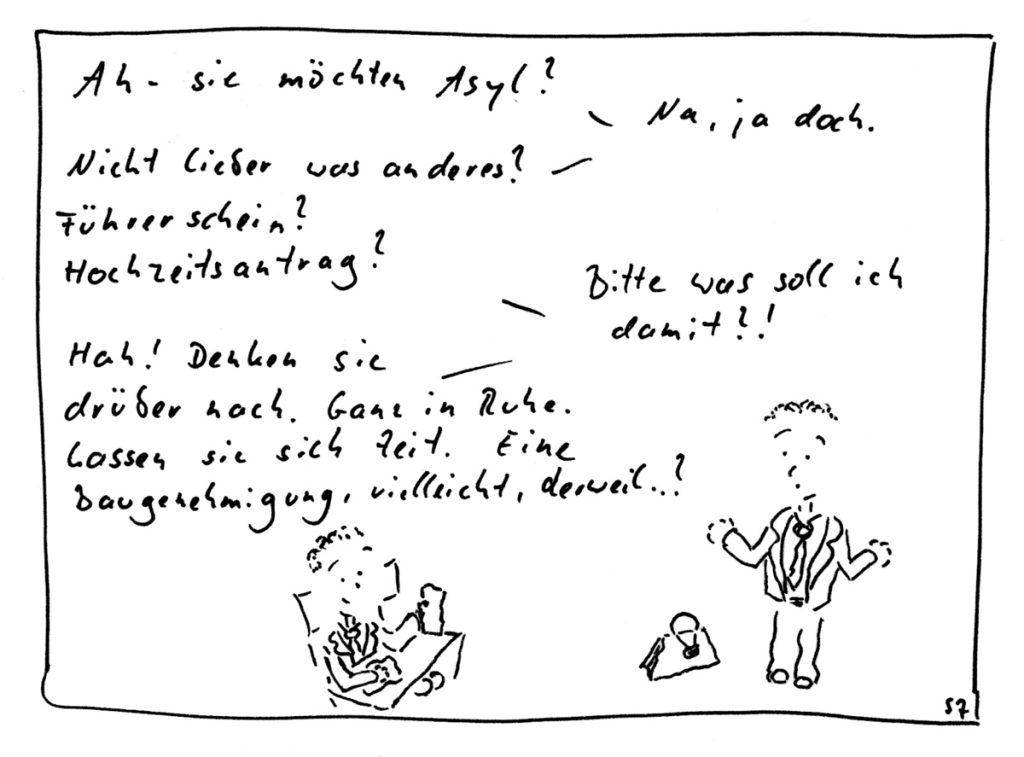 Ah - sie möchten Asyl?
Na, ja doch.
Nicht lieber was anderes?
Führerschein?
Hochzeitsantrag?
Bitte was soll ich
damit?!
Hah! Denken sie
drüber nach. Ganz in Ruhe.
Lassen sie sich Zeit. Eine
Baugenehmigung, vielleicht, derweil..?
57